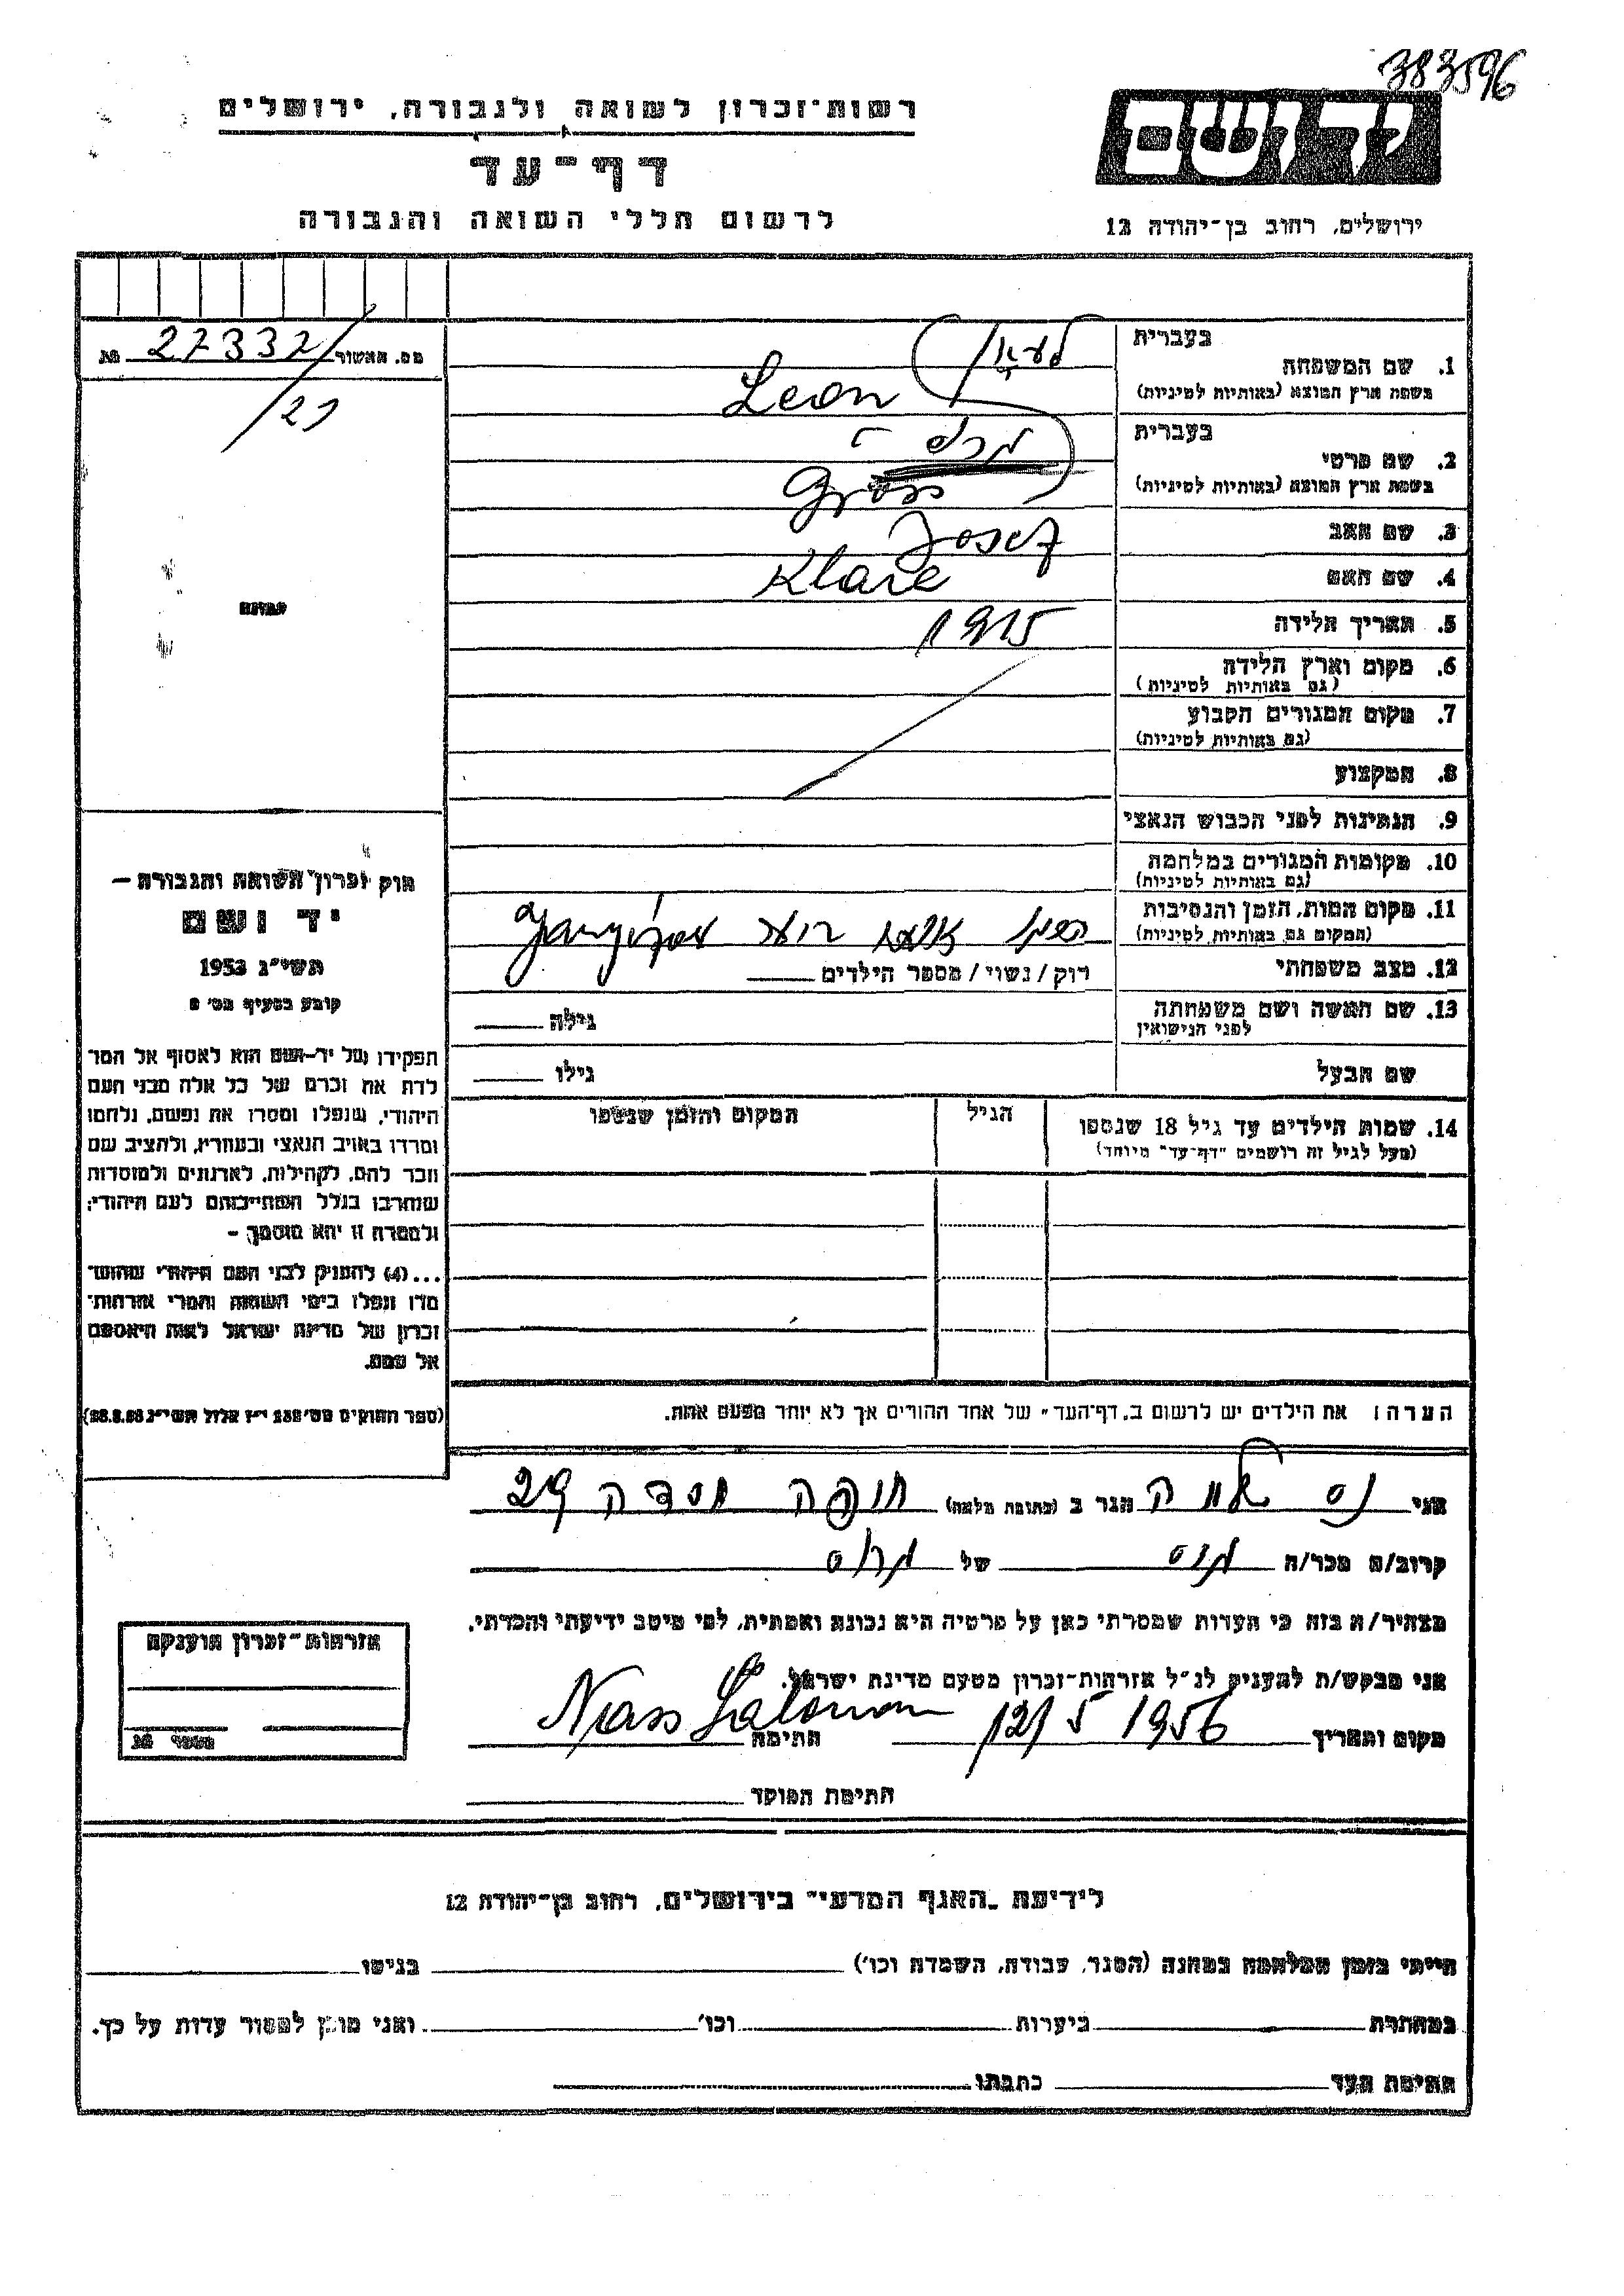 383596
יד ושם
ירושלים, רחוב בן־יהודה 12
רשות־זכרון לשואה ולגבורה, ירושלים
דף־עד
לרשום חללי השואה והגבורה
מס. האשור 27332 מא
בעברית
1. שם המשפחה
בשפת ארץ המוצא (באותיות לטיניות) Leon
בעברית
2. שם פרטי
בשפת ארץ המוצא (באותיות לטיניות) Gross
3. שם האב Josef
4. שם האם Klare
5. תאריך הלידה 1915
6. מקום וארץ הלידה
(גם באותיות לטיניות)
7. מקום המגורים הקבוע
(גם באותיות לטיניות)
8. המקצוע
9. הנתינות לפני הכבוש הנאצי
10. מקומות המגורים במלחמה
(גם באותיות לטיניות)
11. מקום המות, הזמן והנסיבות
(המקום גם באותיות לטיניות)
12. מצב משפחתי רוק / נשוי / מספר הילדים
13. שם האשה ושם משפחתה
לפני הנישואין גילה
שם הבעל גילו
14. שמות הילדים עד גיל 18 שנספו הגיל המקום והזמן שנספו
(מעל לגיל זה רושמים "דף־עד" מיוחד)
הערה: את הילדים יש לרשום ב„דף־העד" של אחד ההורים אך לא יותר מפעם אחת.
חוק זכרון השואה והגבורה —
יד ושם
תשי״ג 1953
קובע בסעיף מס׳ 2
תפקידו של יד־ושם הוא לאסוף אל המו
לדת את זכרם של כל אלה מבני העם
היהודי, שנפלו ומסרו את נפשם, נלחמו
ומרדו באויב הנאצי ובעוזריו, ולהציב שם
וזכר להם, לקהילות, לארגונים ולמוסדות
שנחרבו בגלל השתייכותם לעם היהודי;
ולמטרה זו יהא מוסמך –
...(4) להעניק לבני העם היהודי שהוש־
מדו ונפלו בימי השואה והמרי אזרחות־
זכרון של מדינת ישראל לאות היאספם
אל עמם.
(ספר החוקים מס׳ 132 י״ז אלול תשי״ג 28.8.53)
אני הגר ב (כתובת מלאה) 29
קרוב/ה מכר/ה של
מצהיר/ה בזה כי העדות שמסרתי כאן על פרטיה היא נכונה ואמתית, לפי מיטב ידיעתי והכרתי.
אני מבקש/ת להעניק לנ״ל אזרחות־זכרון מטעם מדינת ישראל.
מקום ותאריך 12/5 1956 חתימה Salomon
חתימת הפוקד
אזרחות־זכרון הוענקה
מספר מא
לידיעת „האגף המדעי" בירושלים, רחוב בן־יהודה 12
הייתי בזמן המלחמה במחנה (הסגר, עבודה, השמדה וכו׳) בגיטו
במחתרת ביערות וכו׳ ואני מוכן למסור עדות על כך.
חתימת העד כתבתו